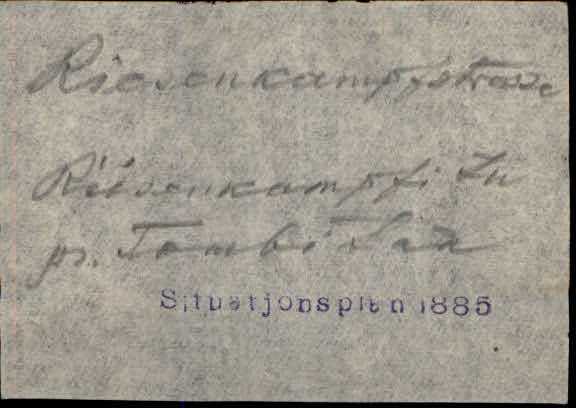 Riesenkampfstrasse
Riisenkampfi tn
pr. Tombi tän
Situatjonsplan 1885